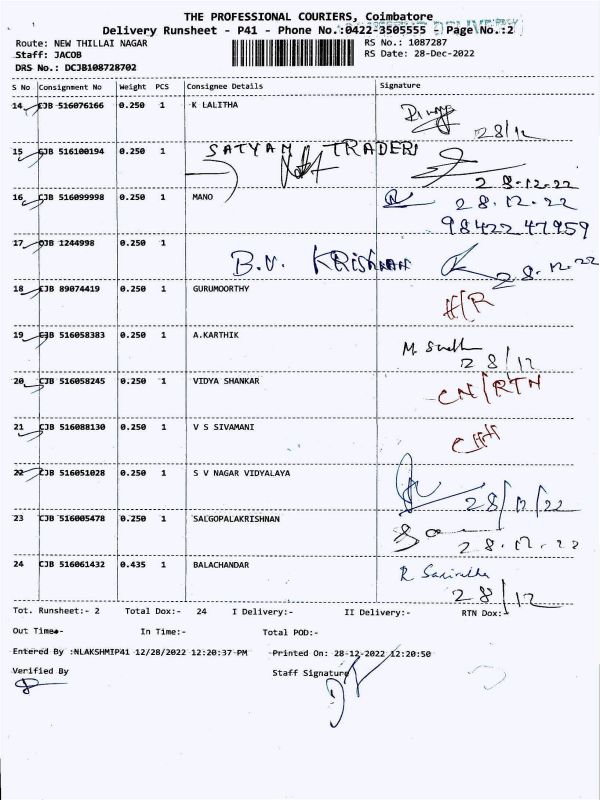 THE PROFESSIONAL COURIERS, Coimbatore
Delivery Runsheet - P41 - Phone No.:0422-3505555 - Page No.:2
Route: NEW THILLAI NAGAR RS No.: 1087287
Staff: JACOB RS Date: 28-Dec-2022
DRS No.: DCJB108728702
S No Consignment No Weight PCS Consignee Details Signature
14 CJB 516076166 0.250 1 K LALITHA
28/12
15 CJB 516100194 0.250 1 SATYAM TRADERS
28.12.22
16 CJB 516099998 0.250 1 MANO 28.12.22
9842247959
17 CJB 1244998 0.250 1
B.V. KRishnan 28.12.22
18 CJB 89074419 0.250 1 GURUMOORTHY
H/R
19 CJB 516058383 0.250 1 A.KARTHIK
28/12
20 CJB 516058245 0.250 1 VIDYA SHANKAR CN/RTN
21 CJB 516088130 0.250 1 V S SIVAMANI
22 CJB 516051028 0.250 1 S V NAGAR VIDYALAYA
28/12/22
23 CJB 516005478 0.250 1 SALGOPALAKRISHNAN
28.12.22
24 CJB 516061432 0.435 1 BALACHANDAR
28/12
Tot. Runsheet:- 2 Total Dox:- 24 I Delivery:- II Delivery:- RTN Dox:-
Out Time:- In Time:- Total POD:-
Entered By :NLAKSHMIP41 12/28/2022 12:20:37 PM Printed On: 28-12-2022 12:20:50
Verified By Staff Signature